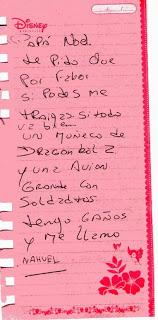 DISNEY
Papá Noel
te Pido Que
Por Fabor
si Podes me
traigas si todo
va bien
un Muñeco de
Dragon bal Z
y una Avion
Grande con
Soldaditos
tengo 6 AÑOS
y Me llamo
NAHUEL